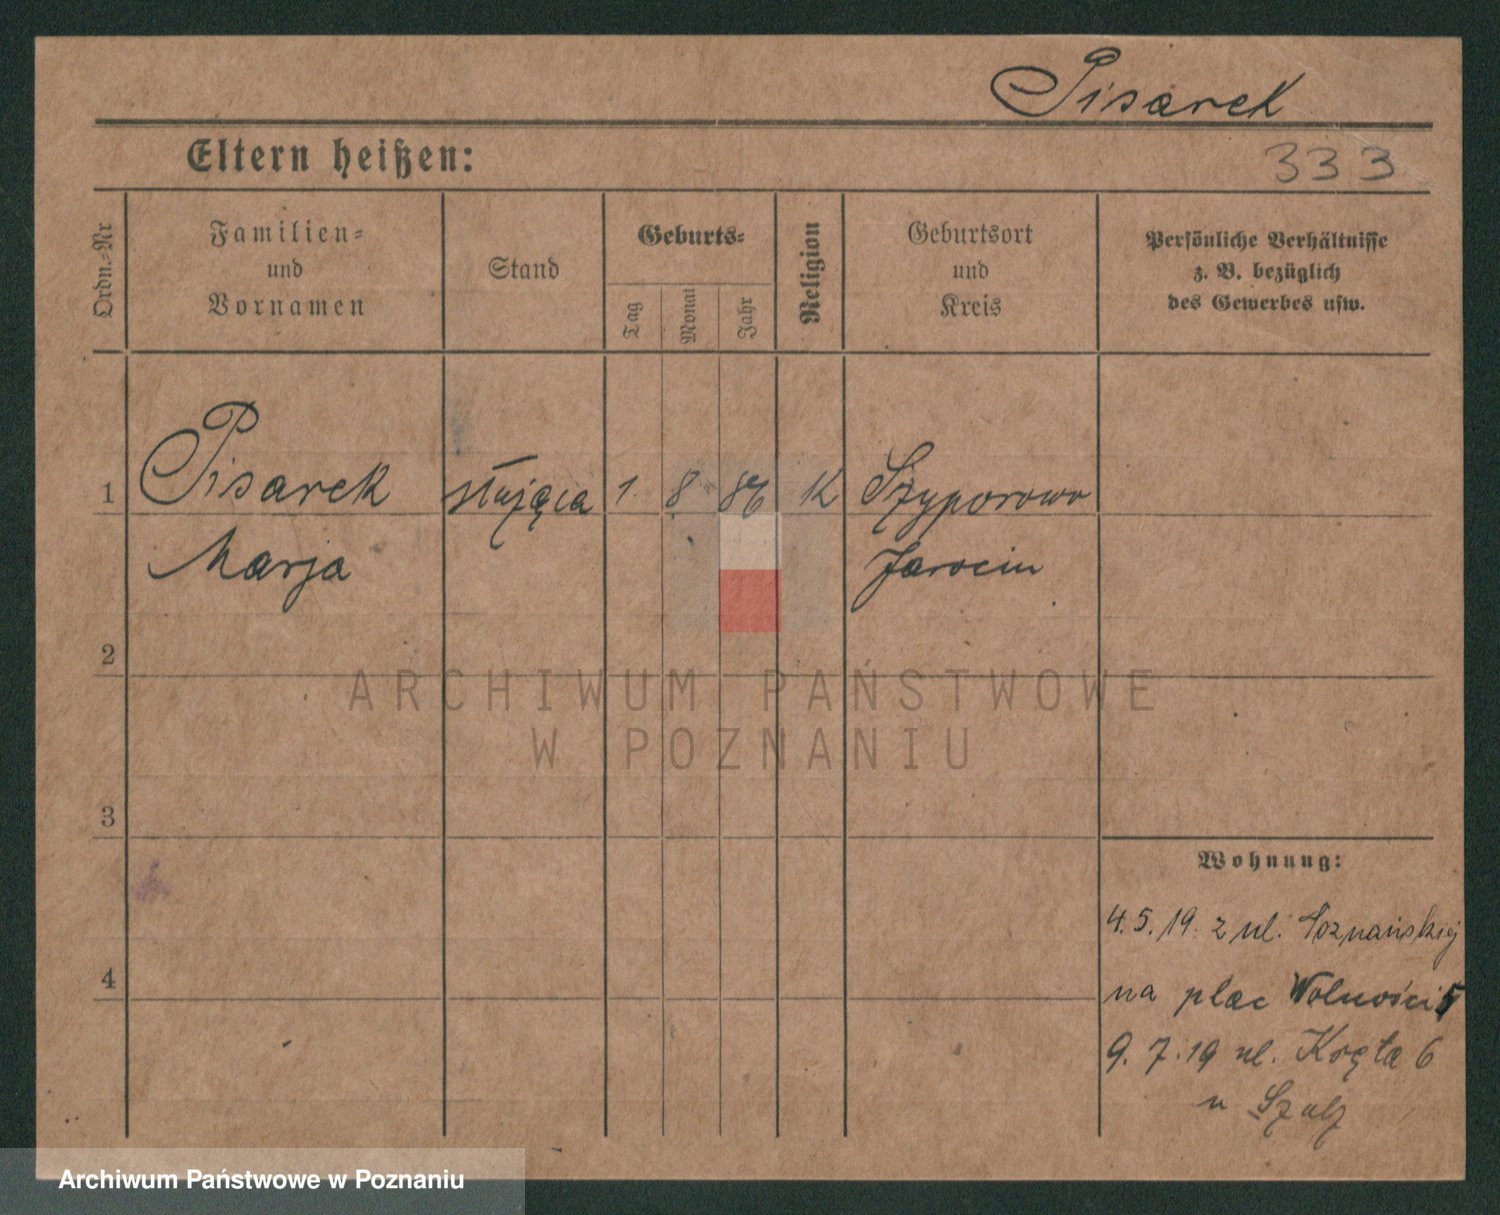 Pisarek
Eltern heißen:
333
Ordn.-Nr
Familien-
und
Vornamen
Stand
Geburts-
Tag
Monat
Jahr
Religion
Geburtsort
und
Kreis
Persönliche Verhältnisse
z. B. bezüglich
des Gewerbes usw.
1 Pisarek służąca 1. 8 86 K Szyporowo
Marja Jarocin
2
ARCHIWUM PAŃSTWOWE
W POZNANIU
3
Wohnung:
4.5.19. z ul. Poznańskiej
4
na plac Wolności 5
9.7.19 ul. Kręta 6
u Szulz
Archiwum Państwowe w Poznaniu